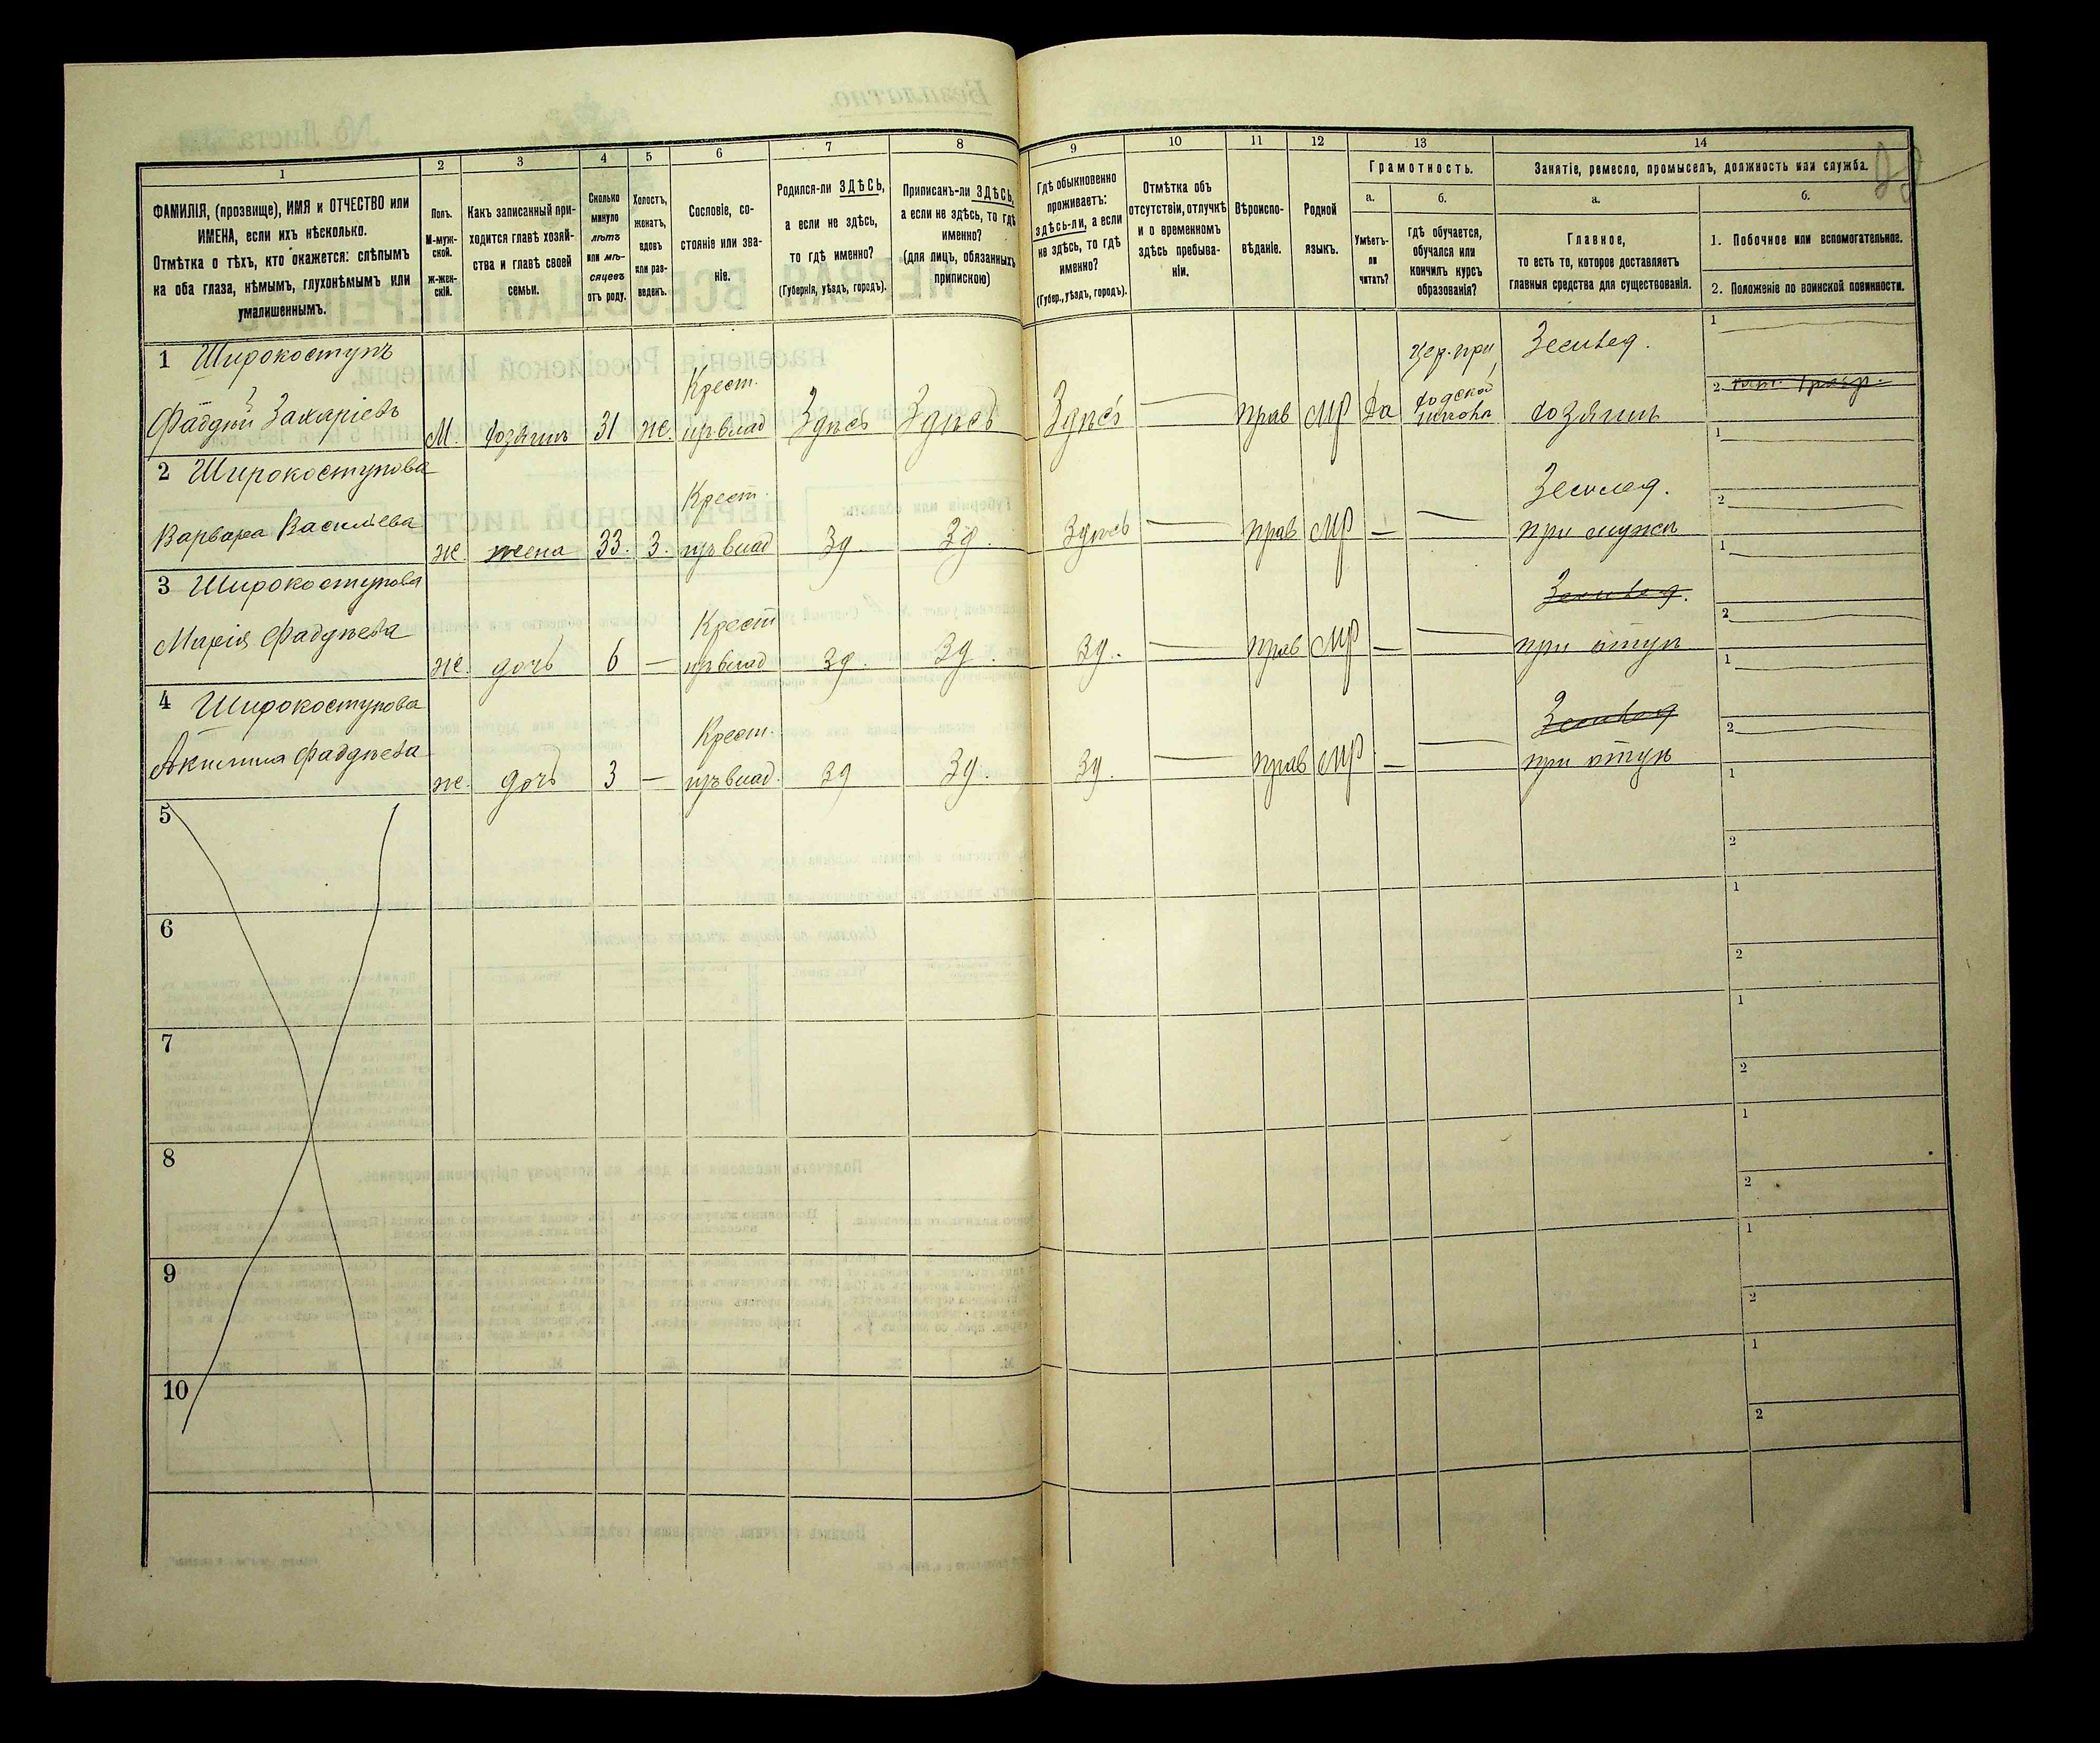 1 2 3 4 5 6 7 8 9 10 11 12 13 14
ФАМИЛІЯ, (прозвище), ИМЯ и ОТЧЕСТВО или
ИМЕНА, если ихъ нѣсколько.
Отмѣтка о тѣхъ, кто окажется: слѣпымъ
на оба глаза, нѣмымъ, глухонѣмымъ или
умалишеннымъ.
Полъ.
М-муж-
ской.
ж-жен-
скій.
Какъ записанный при-
ходится главѣ хозяй-
ства и главѣ своей
семьи.
Сколько
минуло
лѣтъ
или мѣ-
сяцевъ
отъ роду.
Холостъ,
женатъ,
вдовъ
или раз-
веденъ.
Сословіе, со-
стояніе или зва-
ніе.
Родился-ли ЗДѢСЬ,
а если не здѣсь,
то гдѣ именно?
(Губернія, уѣздъ, городъ).
Приписанъ-ли ЗДѢСЬ,
а если не здѣсь, то гдѣ
именно?
(для лицъ, обязанныхъ
припискою)
Гдѣ обыкновенно
проживаетъ:
здѣсь-ли, а если
не здѣсь, то гдѣ
именно?
(Губер., уѣздъ, городъ).
Отмѣтка объ
отсутствіи, отлучкѣ
и о временномъ
здѣсь пребыва-
ніи.
Вѣроиспо-
вѣданіе.
Родной
языкъ.
Грамотность.
а.
Умѣетъ-
ли
читать?
б.
гдѣ обучается,
обучался или
кончилъ курсъ
образованія?
Занятіе, ремесло, промыселъ, должность или служба.
а.
Главное,
то есть то, которое доставляетъ
главныя средства для существованія.
б.
1. Побочное или вспомогательное.
2. Положеніе по воинской повинности.
1 Широкоступъ Крест. Цер. при Земшед. 1
2
Фаддѣй Захаріевъ М. хозяинъ 31 ж. црвлад Здѣсь Здѣсь Здѣсь — прав МР Да ходской школы хозяинъ
2 Широкоступова Крест. Землед. 1
2
Варвара Васильева ж. жена 33. З. црвлад Зд. Зд. Здѣсь — прав МР — — при мужѣ
3 Широкоступова Крест 1
2
Марія Фадѣева ж. дочь 6 — црвлад Зд. Зд. Зд. — прав МР — — при отцѣ
4 Широкоступова Крест. 1
2
Акилина Фаддѣева ж. дочь 3 — црвлад. Зд Зд. Зд. — прав МР — — при отцѣ
5 1
2
6 1
2
7 1
2
8 1
2
9 1
2
10 1
2